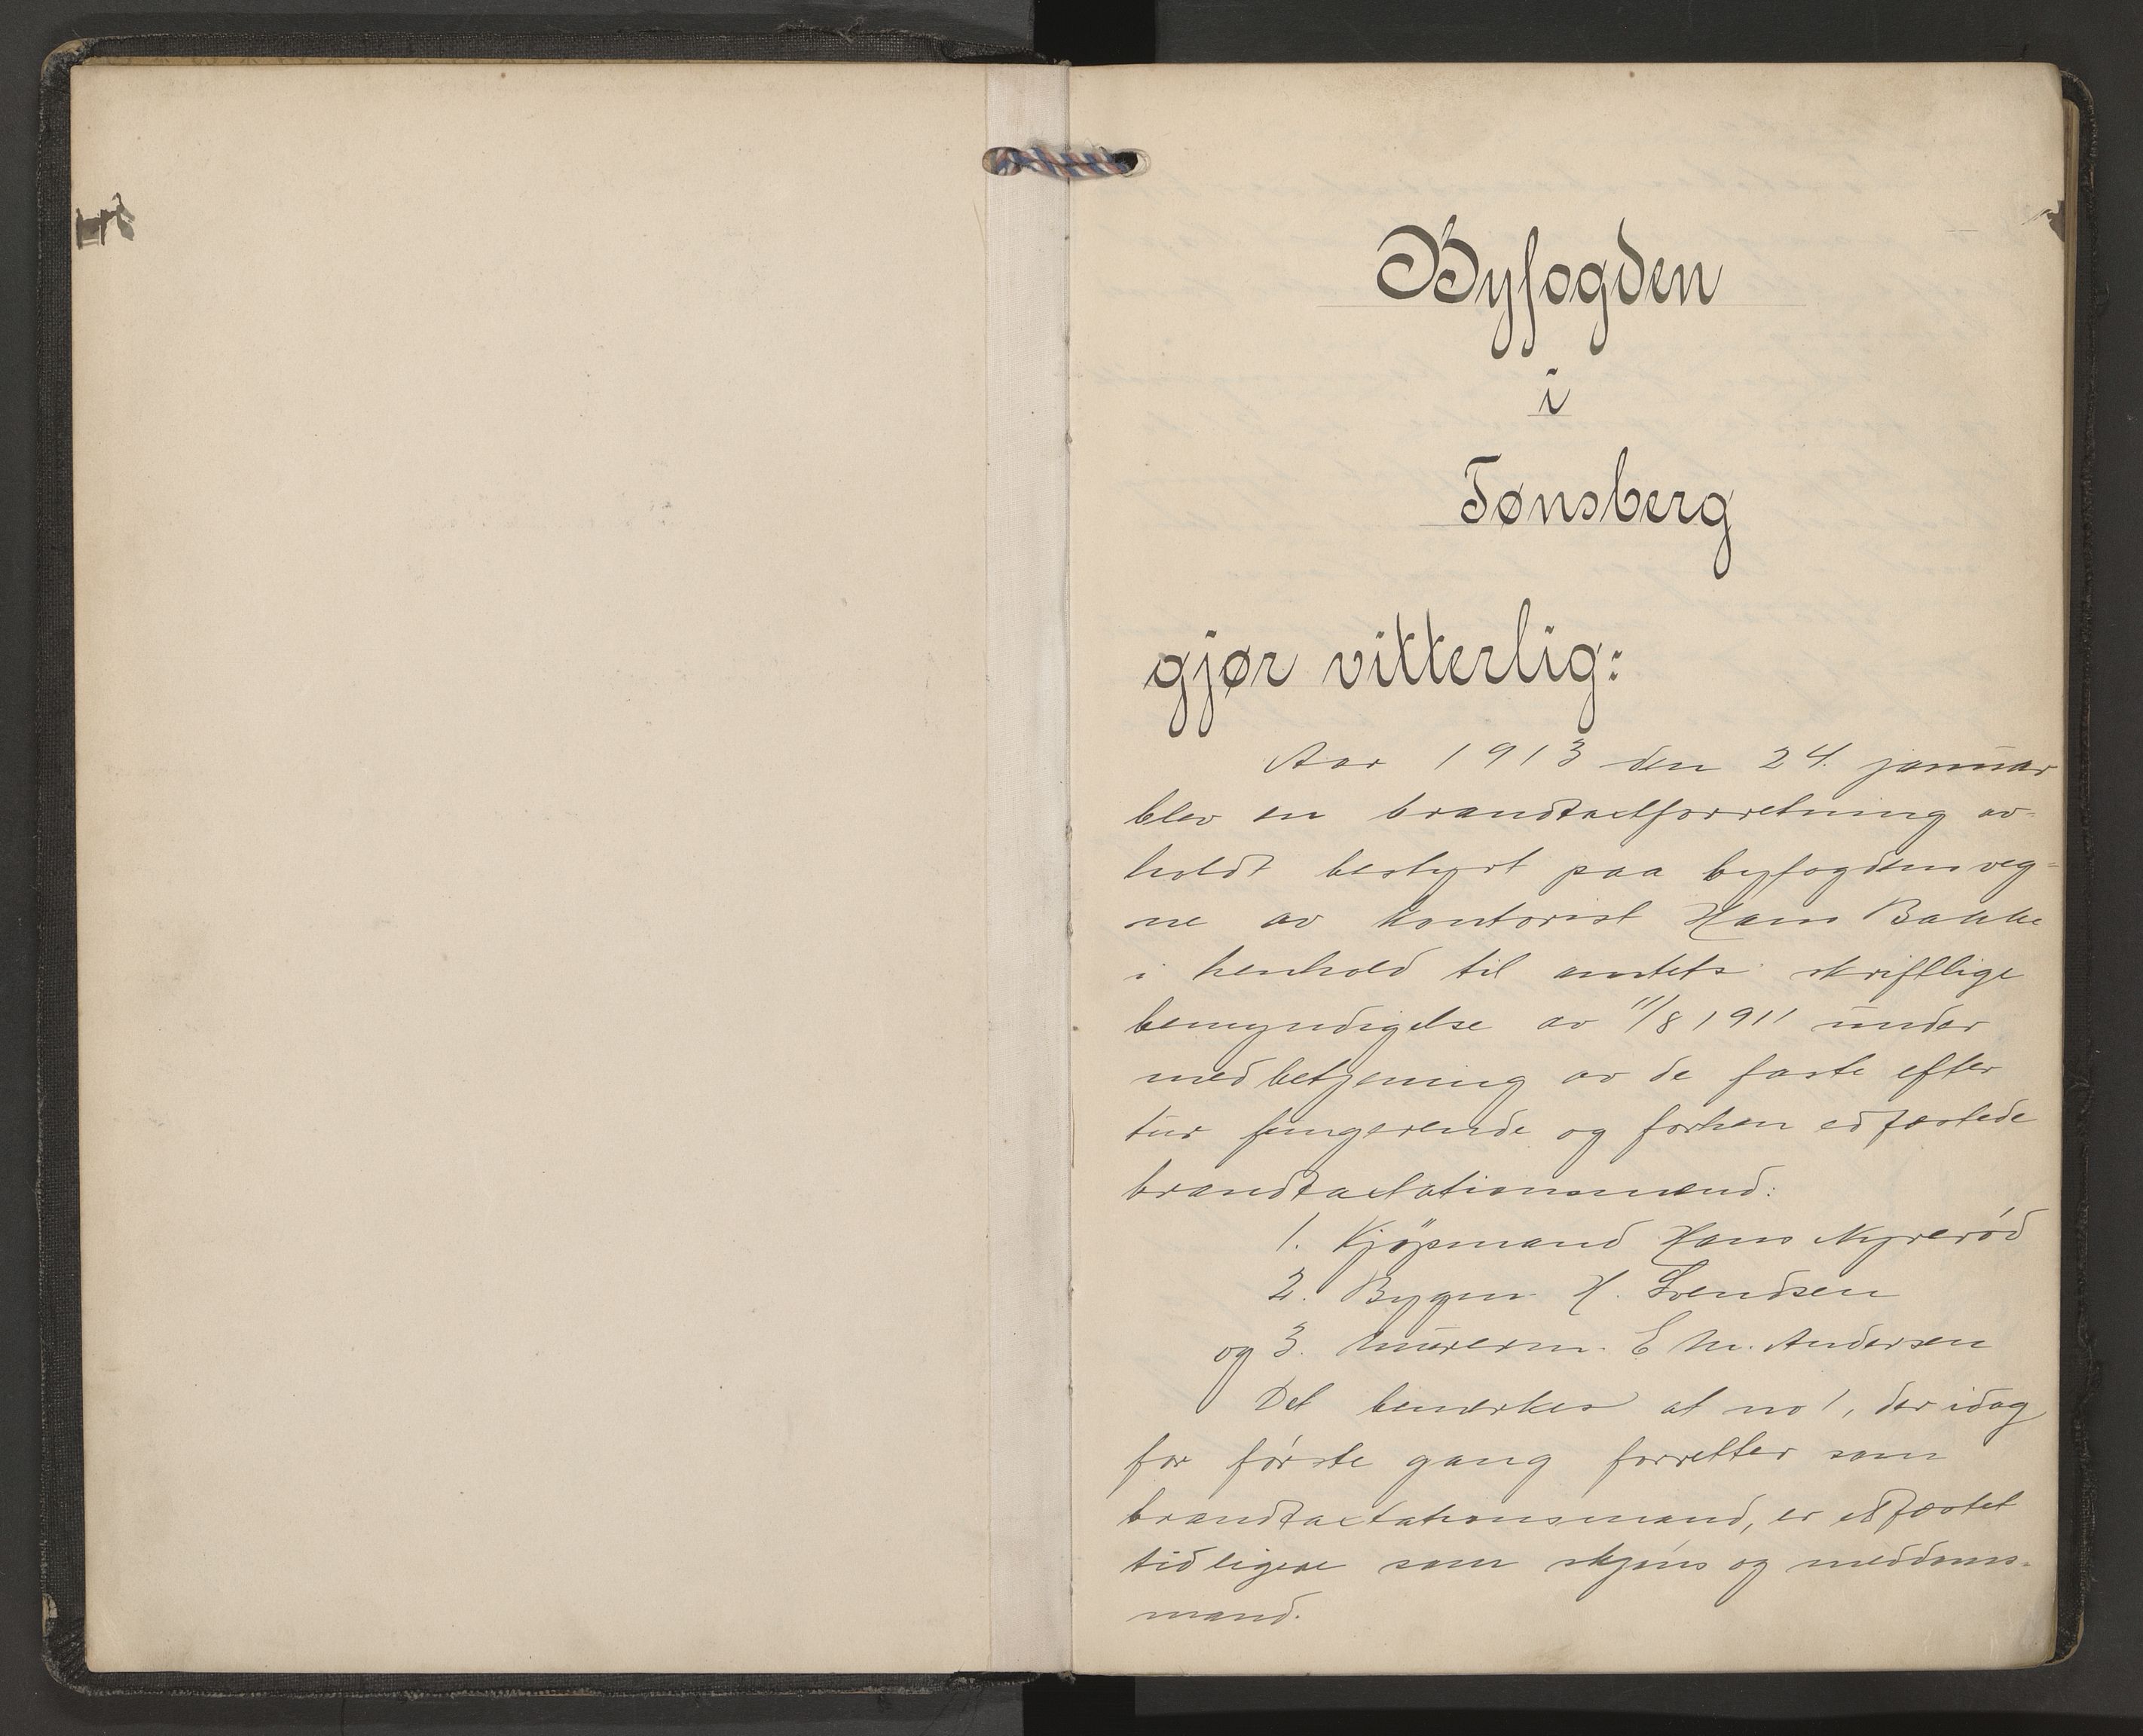 Byfogden
i
Tønsberg
gjør vitterlig:
Aar 1913 den 24. januar
blev en brandtaxtforretning av-
holdt bestyrt paa byfogdens veg-
ne av kontorist Hans Bakke
i henhold til amtets skriftlige
bemyndigelse av 11/8 1911 under
medbetjening av de faste efter
tur fungerende og forhen edfæstede
brandtaxtationsmænd:
1. Kjöpmand Hans Nyreröd
2. Bygm. H. Svendsen
og 3. Murerm. E M. Andersen
Det bemerkes at no 1, der idag
for förste gang forretter som
brandtaxtationsmand, er edfæstet
tidligere som skjöns og meddoms-
mand.